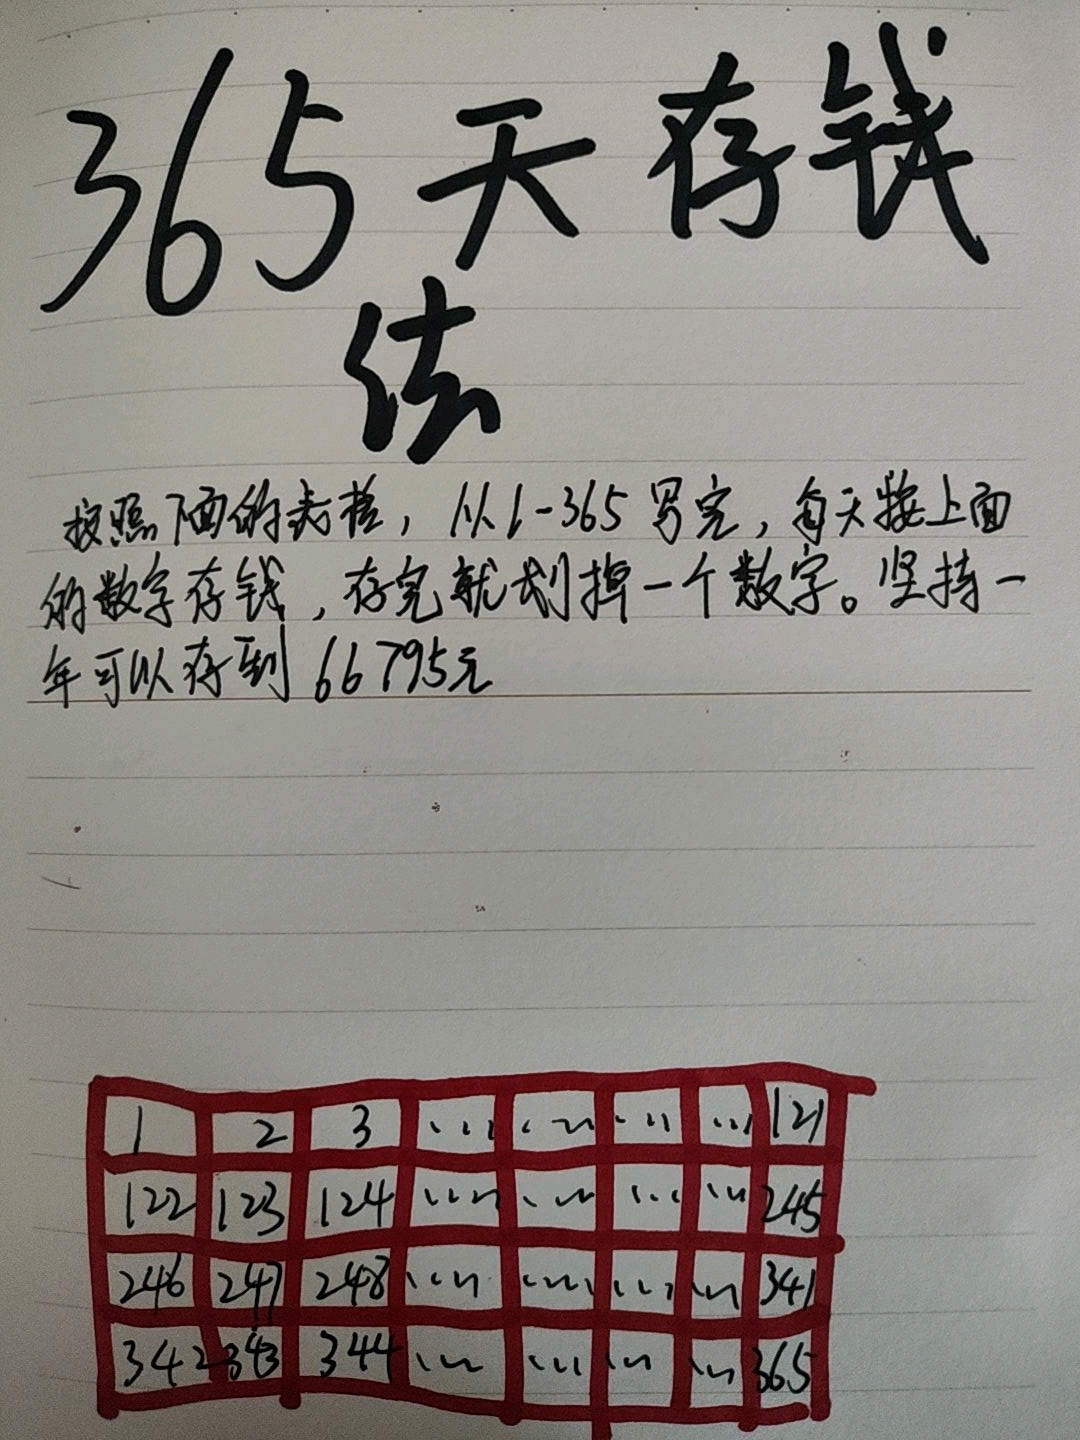 365天存钱
法
按照下面的表格，从1-365写完，每天按上面
的数字存钱，存完就划掉一个数字。坚持一
年可以存到66795元
1 2 3 ... ... ... ... 121
122 123 124 ... ... ... ... 245
246 247 248 ... ... ... ... 341
342 343 344 ... ... ... ... 365